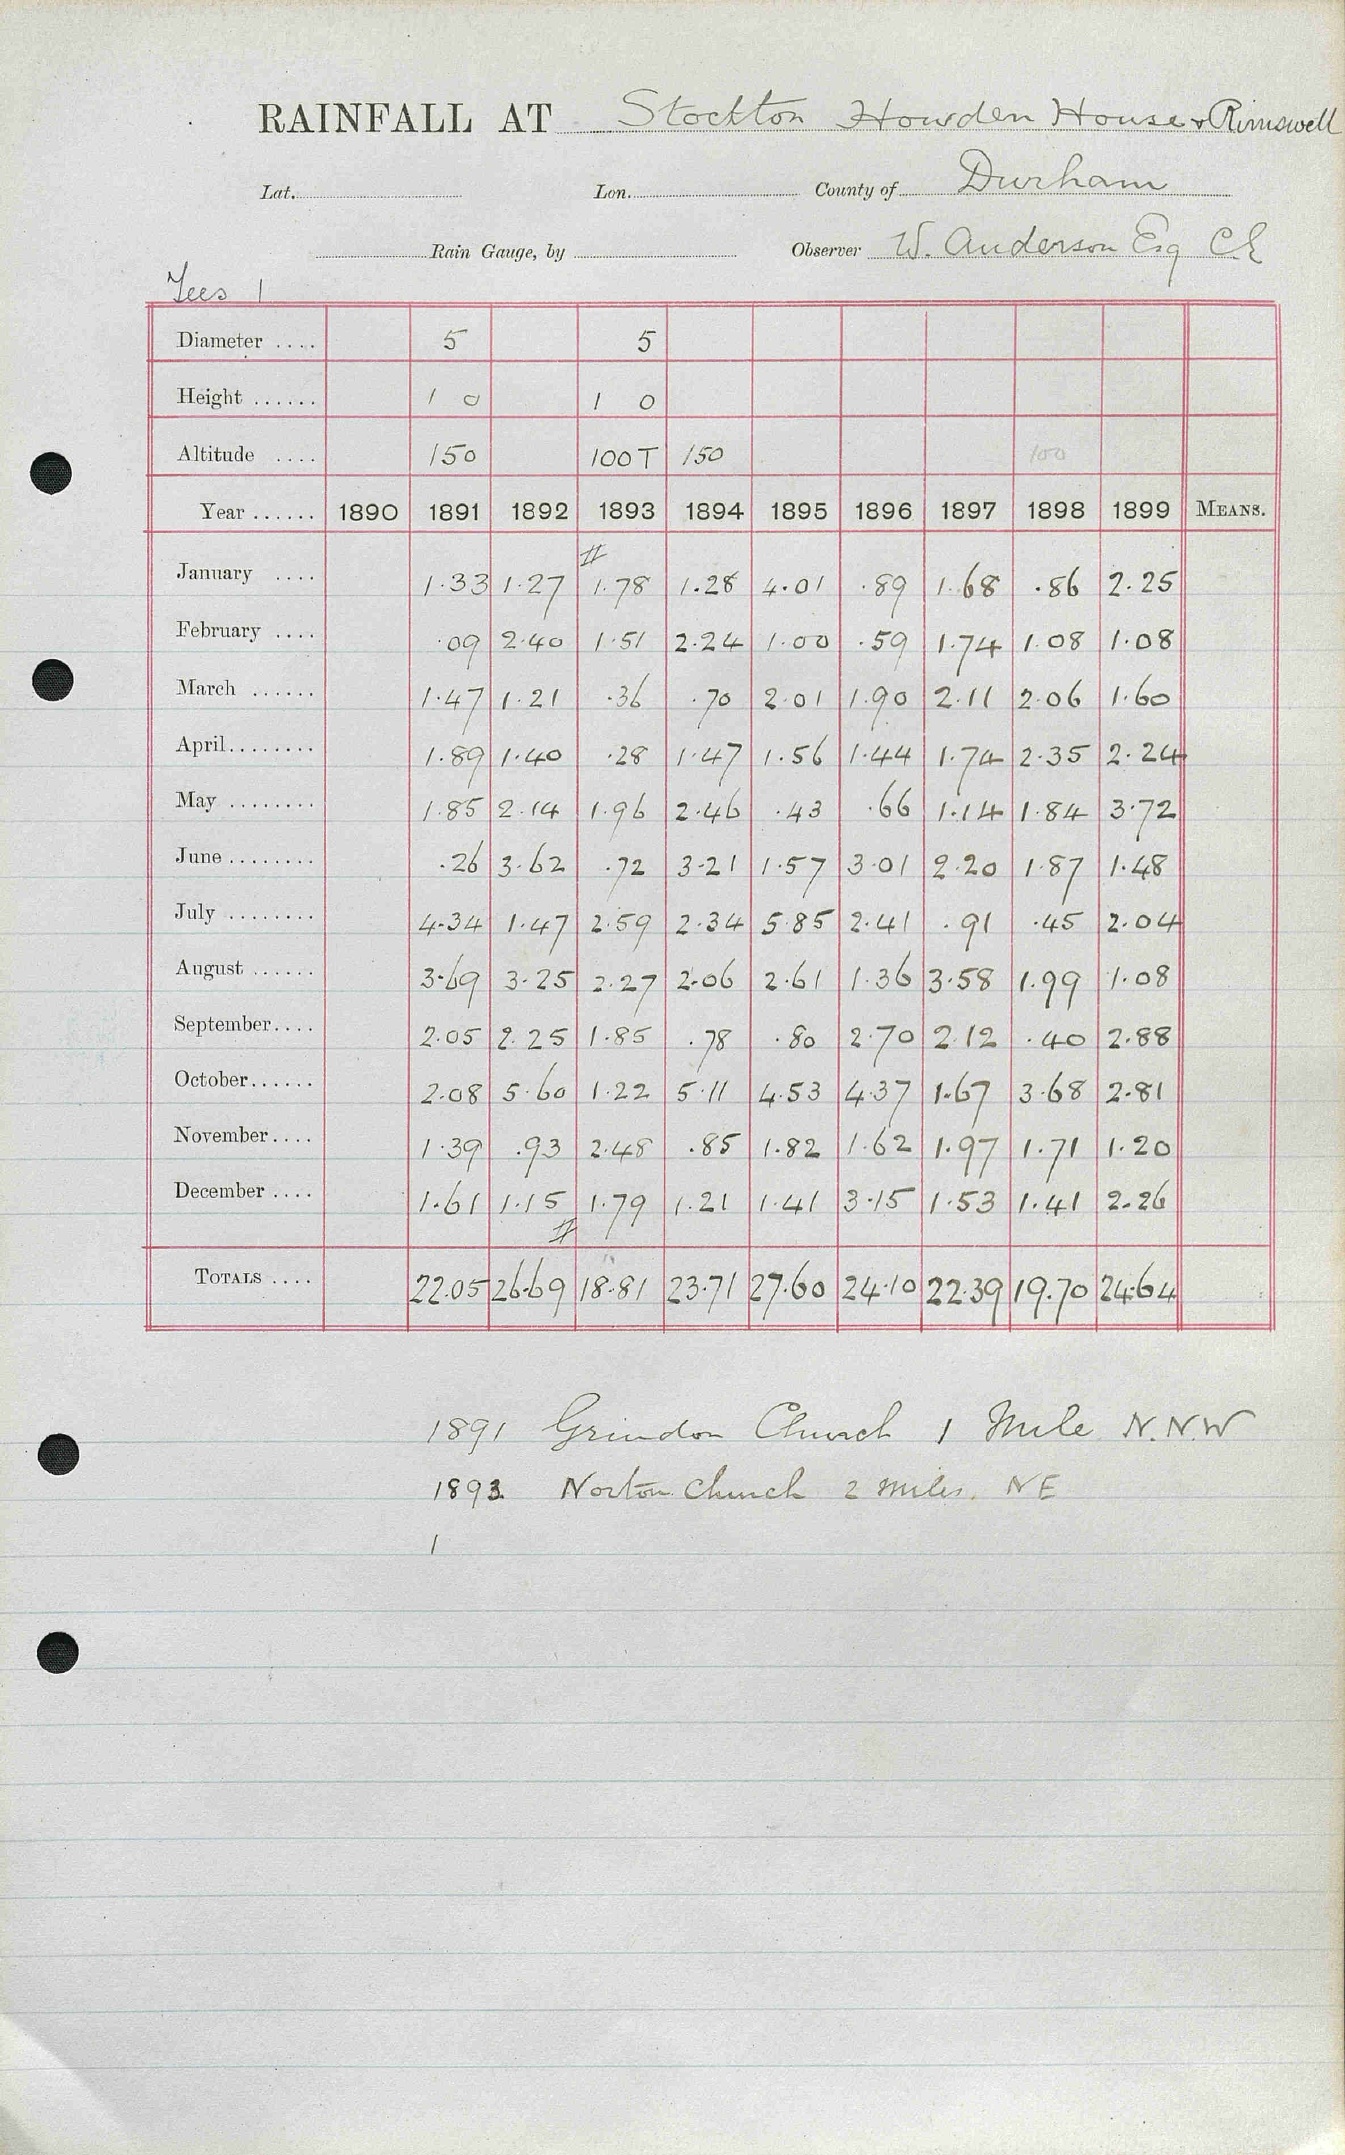 RAINFALL AT Stockton Howden House & Rimswell
Lat. Lon. County of Durham
Rain Gauge, by Observer W. Anderson Esq C.E
Tees 1
Diameter .... 5 5
Height ...... 1 0 1 0
Altitude .... 150 100T 150 100
Year ...... 1890 1891 1892 1893 1894 1895 1896 1897 1898 1899 MEANS.
#
January .... 1.33 1.27 1.78 1.28 4.01 .89 1.68 .86 2.25
February .... .09 2.40 1.51 2.24 1.00 .59 1.74 1.08 1.08
March ...... 1.47 1.21 .36 .70 2.01 1.90 2.11 2.06 1.60
April........ 1.89 1.40 .28 1.47 1.56 1.44 1.74 2.35 2.24
May ........ 1.85 2.14 1.96 2.46 .43 .66 1.14 1.84 3.72
June ........ .26 3.62 .72 3.21 1.57 3.01 2.20 1.87 1.48
July ........ 4.34 1.47 2.59 2.34 5.85 2.41 .91 .45 2.04
August ...... 3.69 3.25 2.27 2.06 2.61 1.36 3.58 1.99 1.08
September.... 2.05 2.25 1.85 .78 .80 2.70 2.12 .40 2.88
October...... 2.08 5.60 1.22 5.11 4.53 4.37 1.67 3.68 2.81
November.... 1.39 .93 2.48 .85 1.82 1.62 1.97 1.71 1.20
December .... 1.61 1.15 1.79 1.21 1.41 3.15 1.53 1.41 2.26
#
TOTALS .... 22.05 26.69 18.81 23.71 27.60 24.10 22.39 19.70 24.64
1891 Grindon Church 1 Mile N.N.W
1893 Norton Church 2 miles. NE
1